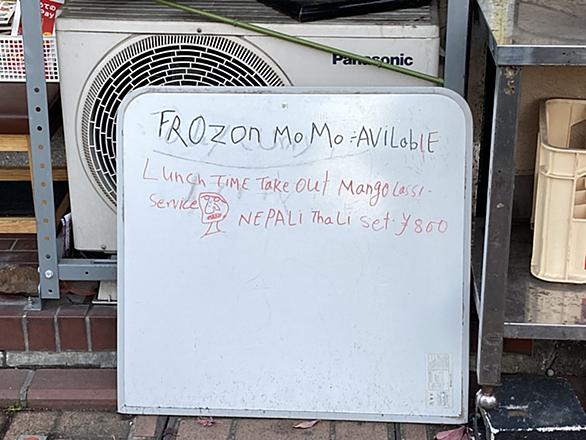 Panasonic
FROZON MOMO =AVILabLE
Lunch TIME Take Out Mango Lassi.
Service NEPALi Thali Set. ¥800